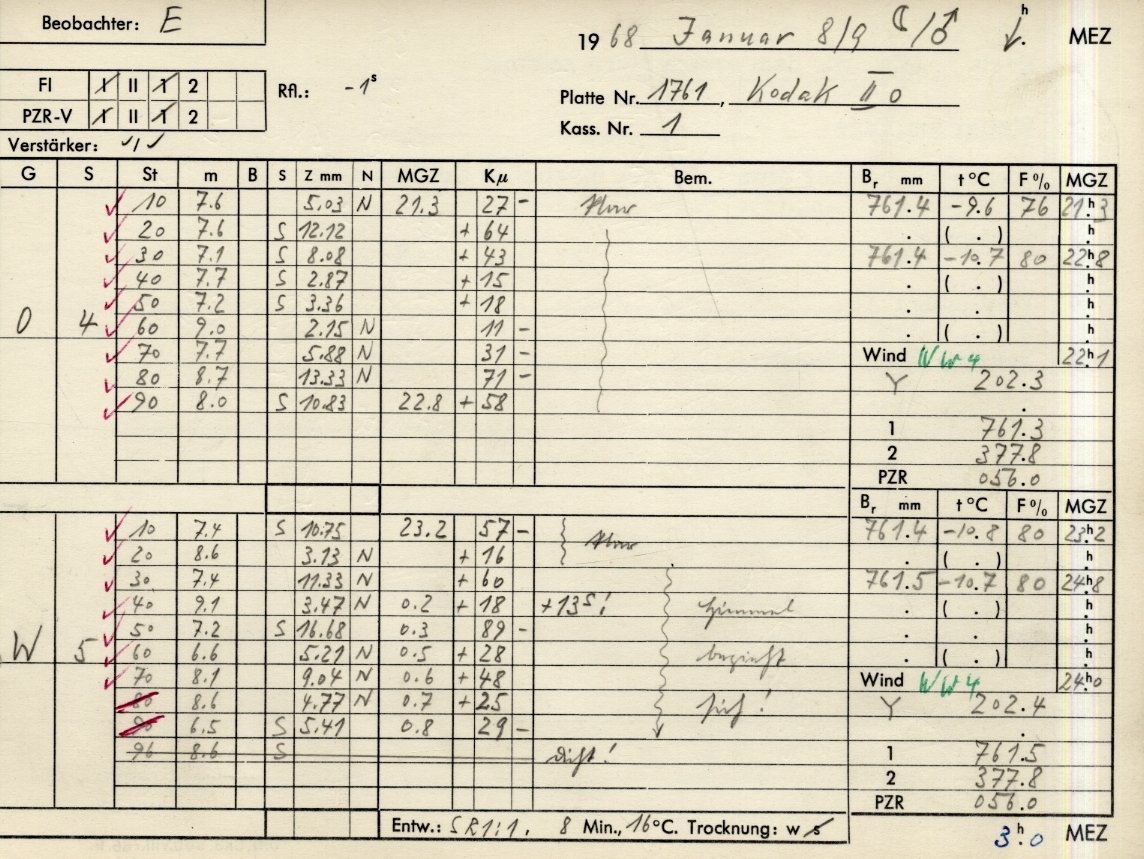 Beobachter: E
19 68 Januar 8/9 ☾/♂ h MEZ
FI I II 1 2 Rfl.: -1s
PZR-V I II 1 2
Platte Nr. 1761, Kodak II o
Kass. Nr. 1
Verstärker: ✓/✓
G S St m B S Z mm N MGZ Kμ Bem. Br mm t °C F % MGZ
10 7.6 5.03 N 21.3 27 - 761.4 -9.6 76 21h.3
20 7.6 S 12.12 + 64 . ( . ) h.
30 7.1 S 8.08 + 43 761.4 -10.7 80 22h.8
40 7.7 S 2.87 + 15 . ( . ) h.
50 7.2 S 3.36 + 18 . . h.
O 4 60 9.0 2.15 N 11 - . ( . ) h.
70 7.7 5.88 N 31 - Wind WW 4 22h.1
80 8.7 13.33 N 71 - Y 202.3
90 8.0 S 10.83 22.8 + 58 .
1 761.3
2 377.8
PZR 056.0
Br mm t °C F % MGZ
10 7.4 S 10.75 23.2 57 - 761.4 -10.8 80 23h.2
20 8.6 3.13 N + 16 . ( . ) h.
30 7.4 11.33 N + 60 761.5 -10.7 80 24h.8
40 9.1 3.47 N 0.2 + 18 +13s! Himmel . ( . ) h.
50 7.2 S 16.68 0.3 89 - . . h.
W 5 60 6.6 5.21 N 0.5 + 28 bezieht . ( . ) h.
70 8.1 9.04 N 0.6 + 48 Wind WW 4 24h.0
80 8.6 4.77 N 0.7 + 25 sich! Y 202.4
90 6.5 S 5.41 0.8 29 - .
96 8.6 S dicht! 1 761.5
2 377.8
PZR 056.0
Entw.: SR1:1, 8 Min., 16°C. Trocknung: w s
3h.0 MEZ